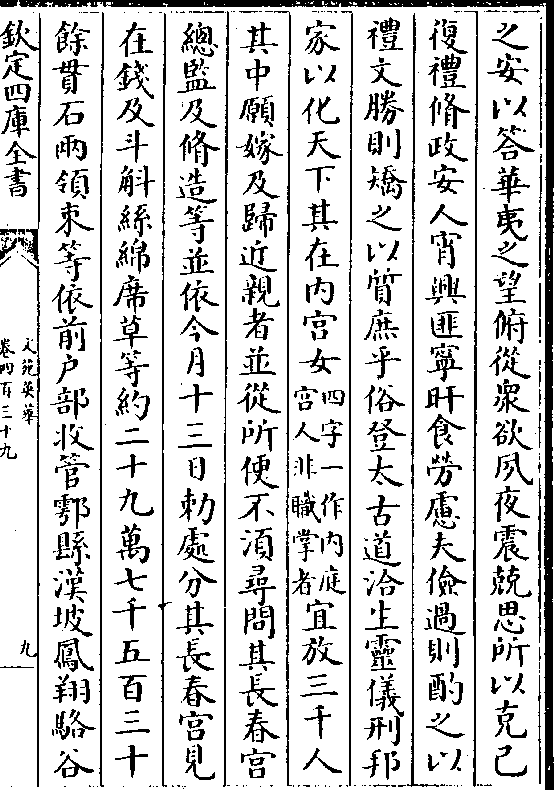 之安以答華夷之望俯從衆欲夙夜震兢思所以克己
復禮脩政安人宵興匪寧旰食勞慮夫儉過則酌之以
禮文勝則矯之以質庶乎俗登太古道洽生靈儀刑邦
家以化天下其在内宫女四字一作内庭宫人非職掌者宜放三千人
其中願嫁及歸近親者並從所便不湏尋問其長春宫
總監及脩造等並依今月十三日勅處分其長春宫見
在錢及斗斛絲綿席草等約二十九萬七千五百三十
餘貫石兩領束等依前户部收管鄠縣漢坡鳳翔駱谷
欽定四庫全書
文苑英華
卷四百三十九
九